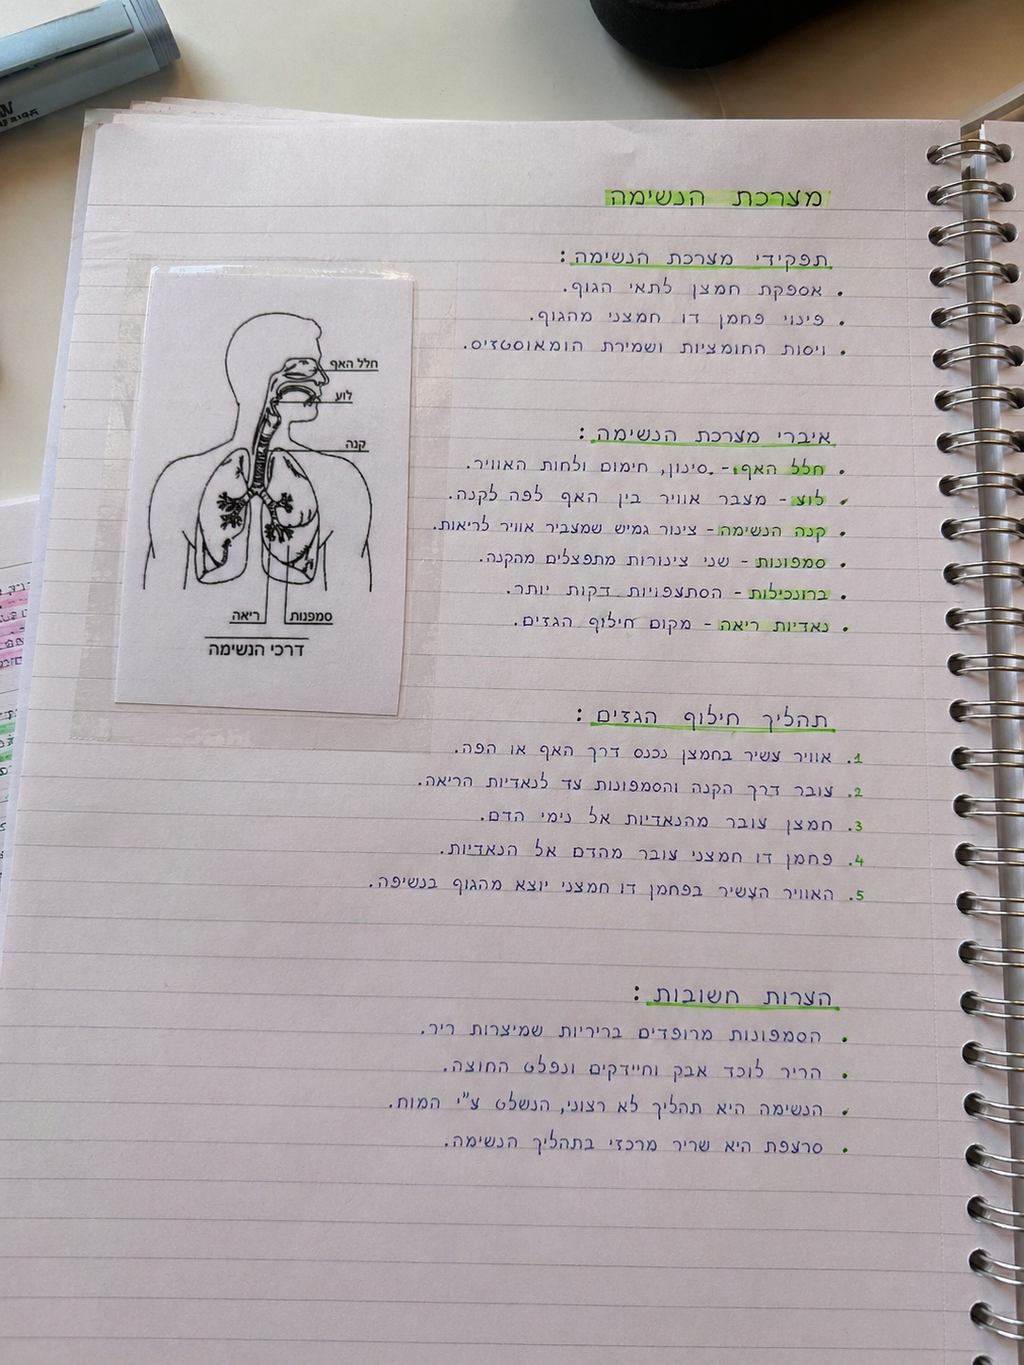 מערכת הנשימה
תפקידי מערכת הנשימה:
• אספקת חמצן לתאי הגוף.
• פינוי פחמן דו חמצני מהגוף.
• ויסות החומציות ושמירת הומאוסטזיס.
איברי מערכת הנשימה:
• חלל האף: - סינון, חימום ולחות האוויר.
• לוע - מעבר אוויר בין האף לפה לקנה.
• קנה הנשימה - צינור גמיש שמעביר אוויר לריאות.
• סמפונות - שני צינורות מתפצלים מהקנה.
• ברונכילות - הסתעפויות דקות יותר.
• נאדיות ריאה - מקום חילוף הגזים.
חלל האף
לוע
קנה
סמפנות
ריאה
דרכי הנשימה
תהליך חילוף הגזים:
1. אוויר עשיר בחמצן נכנס דרך האף או הפה.
2. עובר דרך הקנה והסמפונות עד לנאדיות הריאה.
3. חמצן עובר מהנאדיות אל נימי הדם.
4. פחמן דו חמצני עובר מהדם אל הנאדיות.
5. האוויר העשיר בפחמן דו חמצני יוצא מהגוף בנשיפה.
הערות חשובות:
• הסמפונות מרופדים בריריות שמיצרות ריר.
• הריר לוכד אבק וחיידקים ונפלט החוצה.
• הנשימה היא תהליך לא רצוני, הנשלט ע"י המוח.
• סרעפת היא שריר מרכזי בתהליך הנשימה.